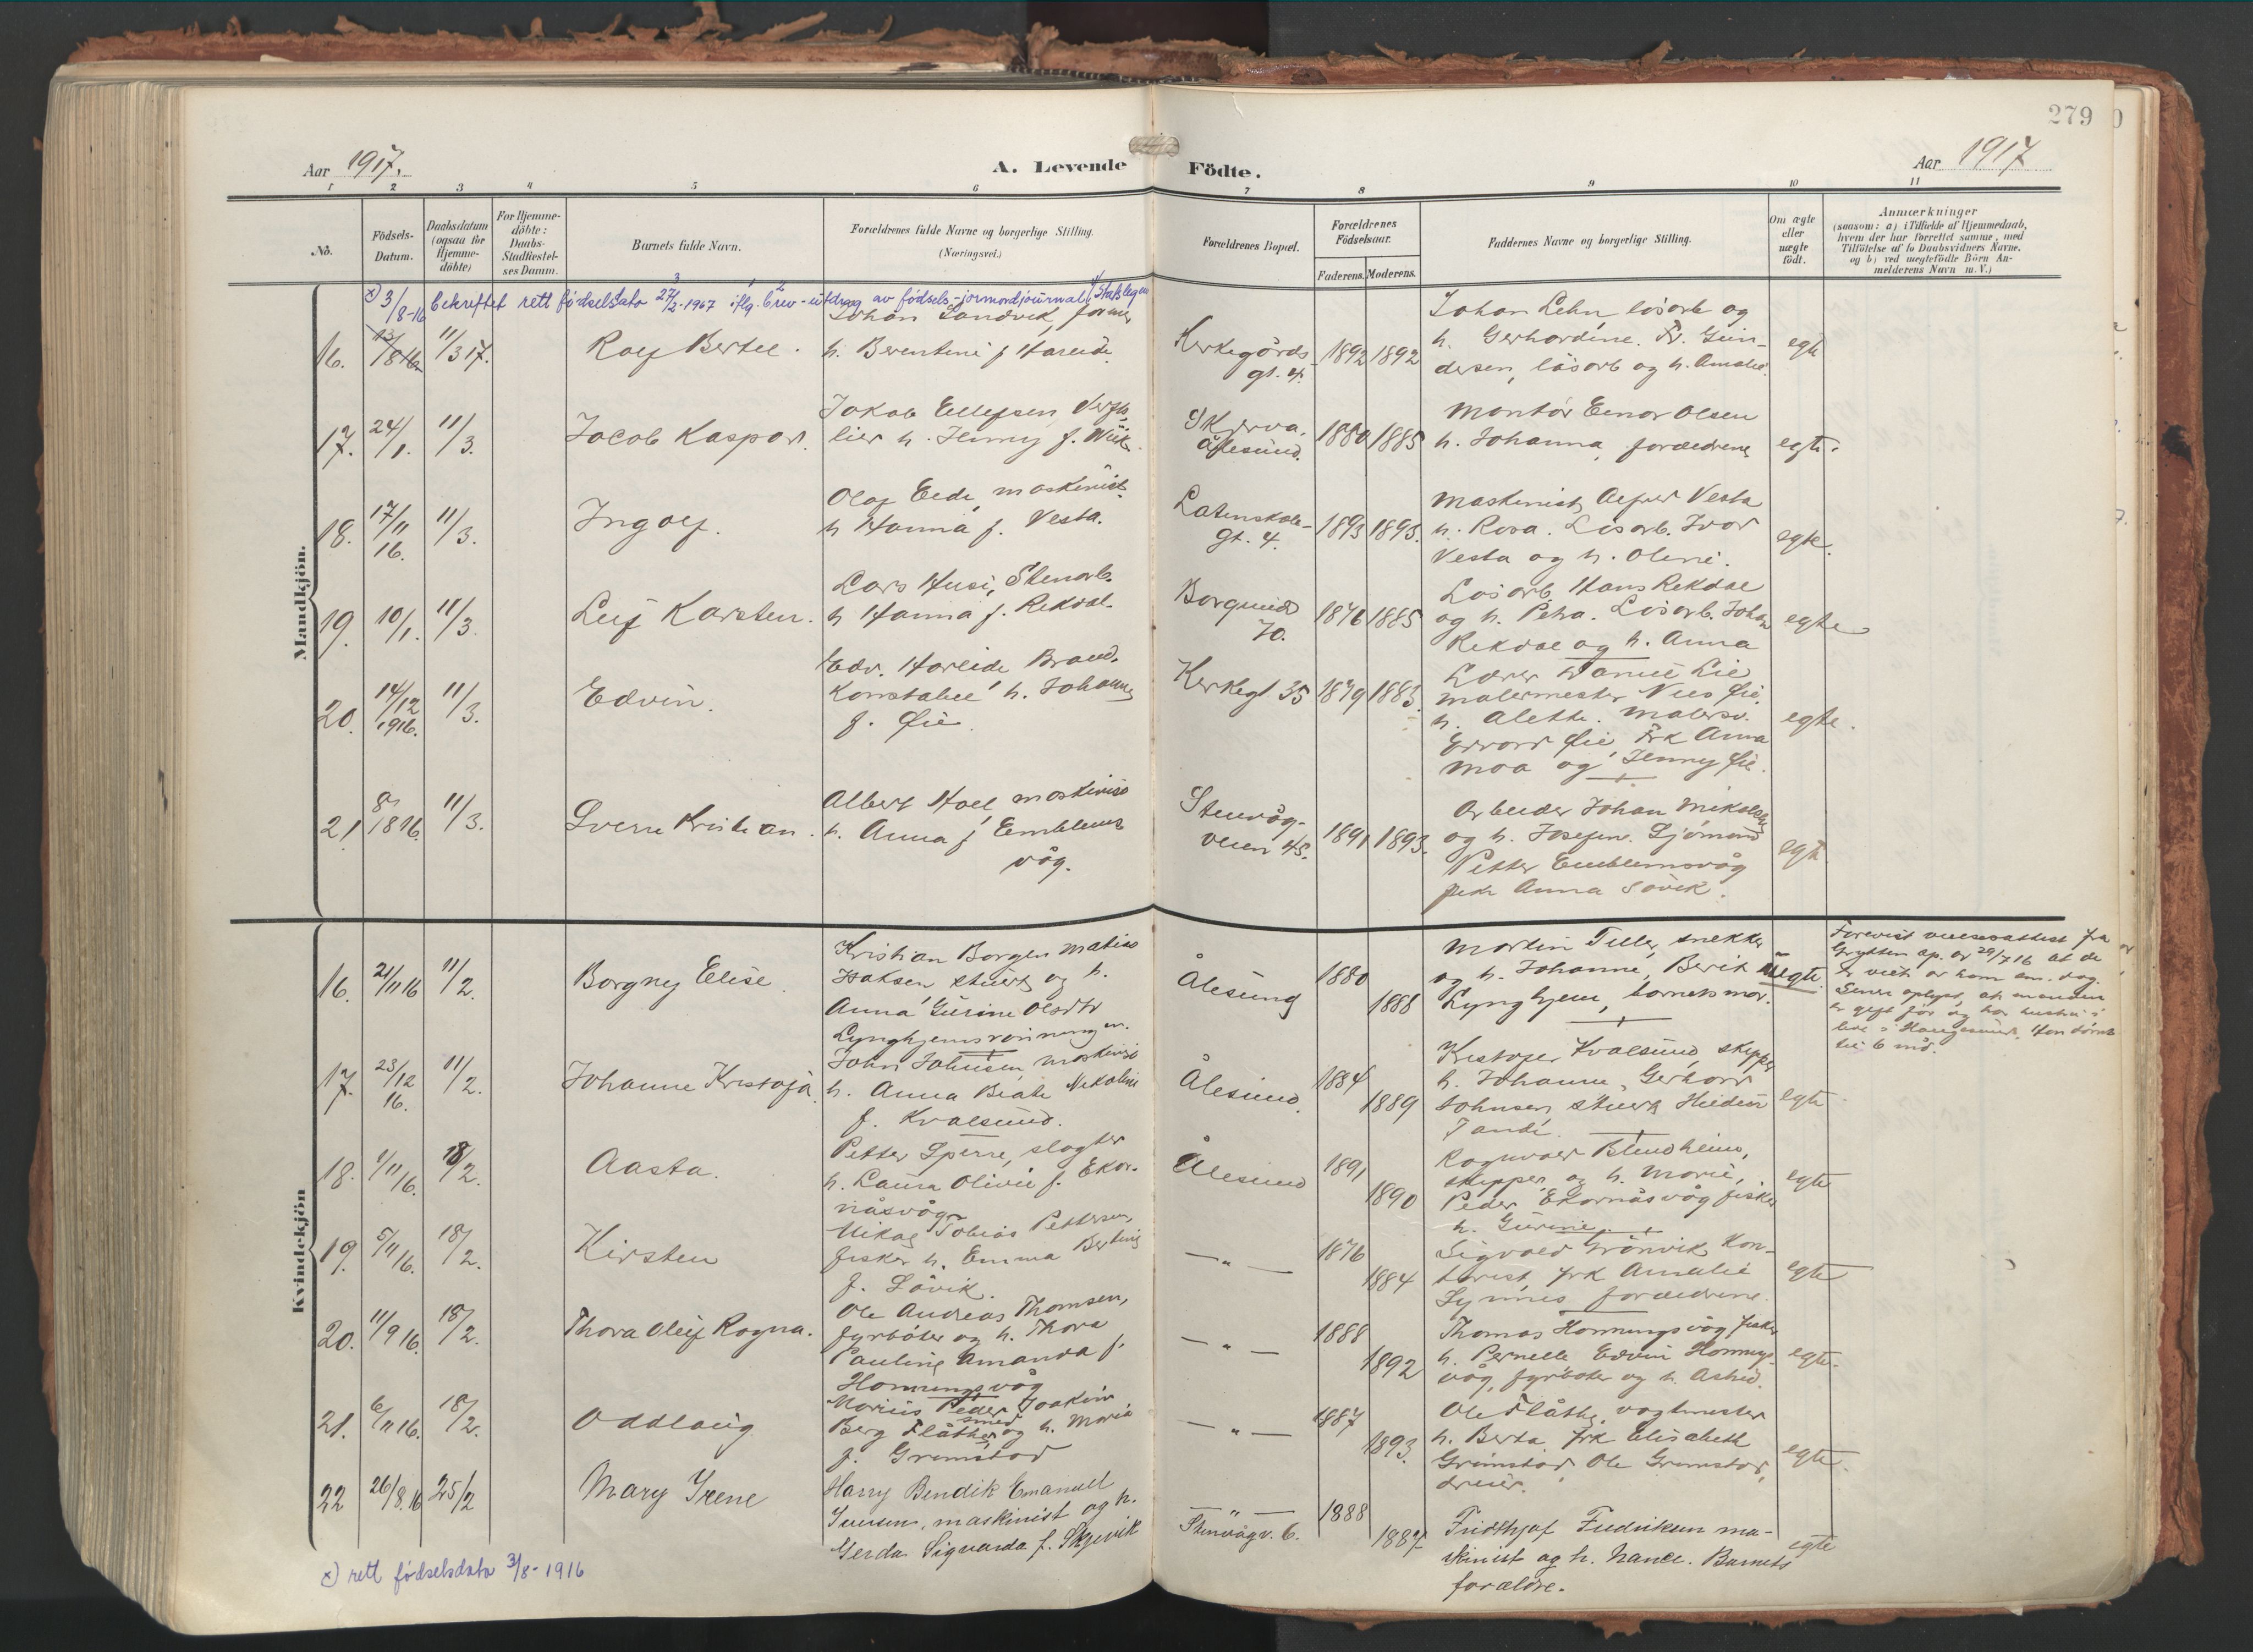 279
Aar 1917.
A. Levende Födte.
Aar 1917
1 2 3 4 5 6 7 8 9 10 11
No.
Födsels-
Datum.
Daabsdatum
(ogsaa for
Hjemme-
döbte)
For Hjemme-
döbte:
Daabs-
Stadfæstel-
ses Datum.
Barnets fulde Navn.
Forældrenes fulde Navne og borgerlige Stilling.
(Næringsvei.)
Forældrenes Bopæl.
Forældrenes
Födselsaar.
Faderens. Moderens.
Faddernes Navne og borgerlige Stilling.
Om ægte
eller
uægte
födt.
Anmærkninger
(saasom: a) i Tilfælde af Hjemmedaab,
hvem der har forrettet samme, med
Tilföielse af to Daabsvidners Navne,
og b) ved uægtefödte Börn An-
melderens Navn m. V.)
Mandkjön.
x) 3/8-16 bekreftet rett fødselsdato 27/2-1967 iflg. brev-utdrag av fødsels-jormordjournal
16. 13/8 16 11/3 17.
Rolf Bertel.
Johan Sandvik, former
h. Berentine f Hareide.
Kirkegårds
gt. 4.
1892 1892
Johan Lehn løsarb og
h. Gerhardine. Fr. Gun-
dersen, løsarb og h. Amalie.
egte
17. 24/1. 11/3.
Jacob Kaspar.
Jakob Ellefsen,
h. Jenny f. Wiik.
Skjerva,
Ålesund.
1880 1885
Montør Einar Olsen
h. Johanna, forældrene
egte.
18. 17/11 16. 11/3.
Ingolf.
Olaf Eide, maskinist
h Hanna f. Vesta.
Latinskole-
gt. 4.
1893 1893.
Maskinist Alfred Vesta
h. Rosa. Løsarb. Ivar
Vesta og h. Oline.
egte.
19. 10/1. 11/3.
Leif Karsten.
Lars Huse, Stenarb.
h Hanna f. Rekdal.
Borgund
70.
1876 1885
Løsarb Hans Rekdal
og h. Petra. Løsarb. Johan
Rekdal og h. Anna
egte
20. 14/12 1916. 11/3.
Edvin.
Edv. Hareide Brand-
konstabel h. Johanne
f. Øie.
Kirkegt 35
1879 1883.
Lærer Daniel Lie
malermester Nils Øie
h. Alette. Malersv.
Edvard Øie, Frk Anna
Moa og Jenny Øie.
egte.
21. 8/1816. 11/3.
Sverre Kristian.
Albert Hoel maskinist
h. Anna f Emblems-
våg.
Stenvåg-
veien 45.
1891 1893.
Arbeider Johan Mikalsen
og h. Josefine. Sjömand
Petter Emblemsvåg
pike Anna Søvik.
egte
Kvindekjön
16. 21/11 16 11/2.
Borgny Elise.
Kristian Borgen Matias
Isaksen stuert og h.
Anna Gurine Olsdtr
Lynghjemsrønningen.
Ålesund
1880
1888
Martin Tiller, snekker
og h. Johanne, Berit
Lynghjem, barnets mor.
uegte.
Forevist vielsesattest fra
Grytten sp. af 29/7 16 at de
er viet av ham s.m. dag.
Senere oplyst, at manden
er gift før og har hustru i
live i Haugesund. Han dömt
til 6 md.
17. 23/12 16. 11/2.
Johanne Kristofa.
John Johnsen, maskinist
h. Anna Beate Nikoline
f. Kvalsund.
Ålesund.
1884
1889
Kristofer Kvalsund, skipper
h. Johanne, Gerhard
Johnsen, stuert
egte
18. 1/11 16. 18/2.
Aasta.
Petter Sperre, slagter
h. Laura Olivie f. Ekor-
nåsvåg.
Ålesund
1891
1890
Ragnvald Blindheim,
skipper og h. Marie,
Peder Ekornåsvåg fisker
h. Gurine.
egte
19. 5/11 16. 18/2.
Kirsten
Mikal Tobias Pettersen,
fisker h. Emma Bertine
f. Løvik.
— " —
1876
1884
Sigvald Grönvik kon-
torist, frk Amalie
Synnes forældrene.
egte
20. 11/9 16. 18/2.
Thora Oleif Ragna.
Ole Andreas Thomsen,
fyrböter og h. Thora
Pauline Amanda f.
Hornungsvåg
— " —
1888
1892
Thomas Hornungsvåg fisker
h. Pernelle Edvin Hornungs-
våg, fyrböter og h. Astrid.
egte.
21. 6/11 16. 18/2.
Oddlaug
Marius Peder Joakim
Berg Flåthe, smed og h. Maria
f. Grimstad
— " —
1887
1893.
Ole Flåthe, vogtmester
h. Berta frk Elisabeth
Grimstad, Ole Grimstad,
dreier.
egte.
22 26/8.16 25/2
Mary Irene
Harry Bendik Emanuel
Iversen, maskinist og h.
Gerda Sigvarda f. Skjevik
— " —
Stenvågv. 6.
1888
1887
Fridthjof Fredriksen ma-
skinist og h. Nance. Barnets
forældre.
egte
x) rett fødselsdato 3/8-1916